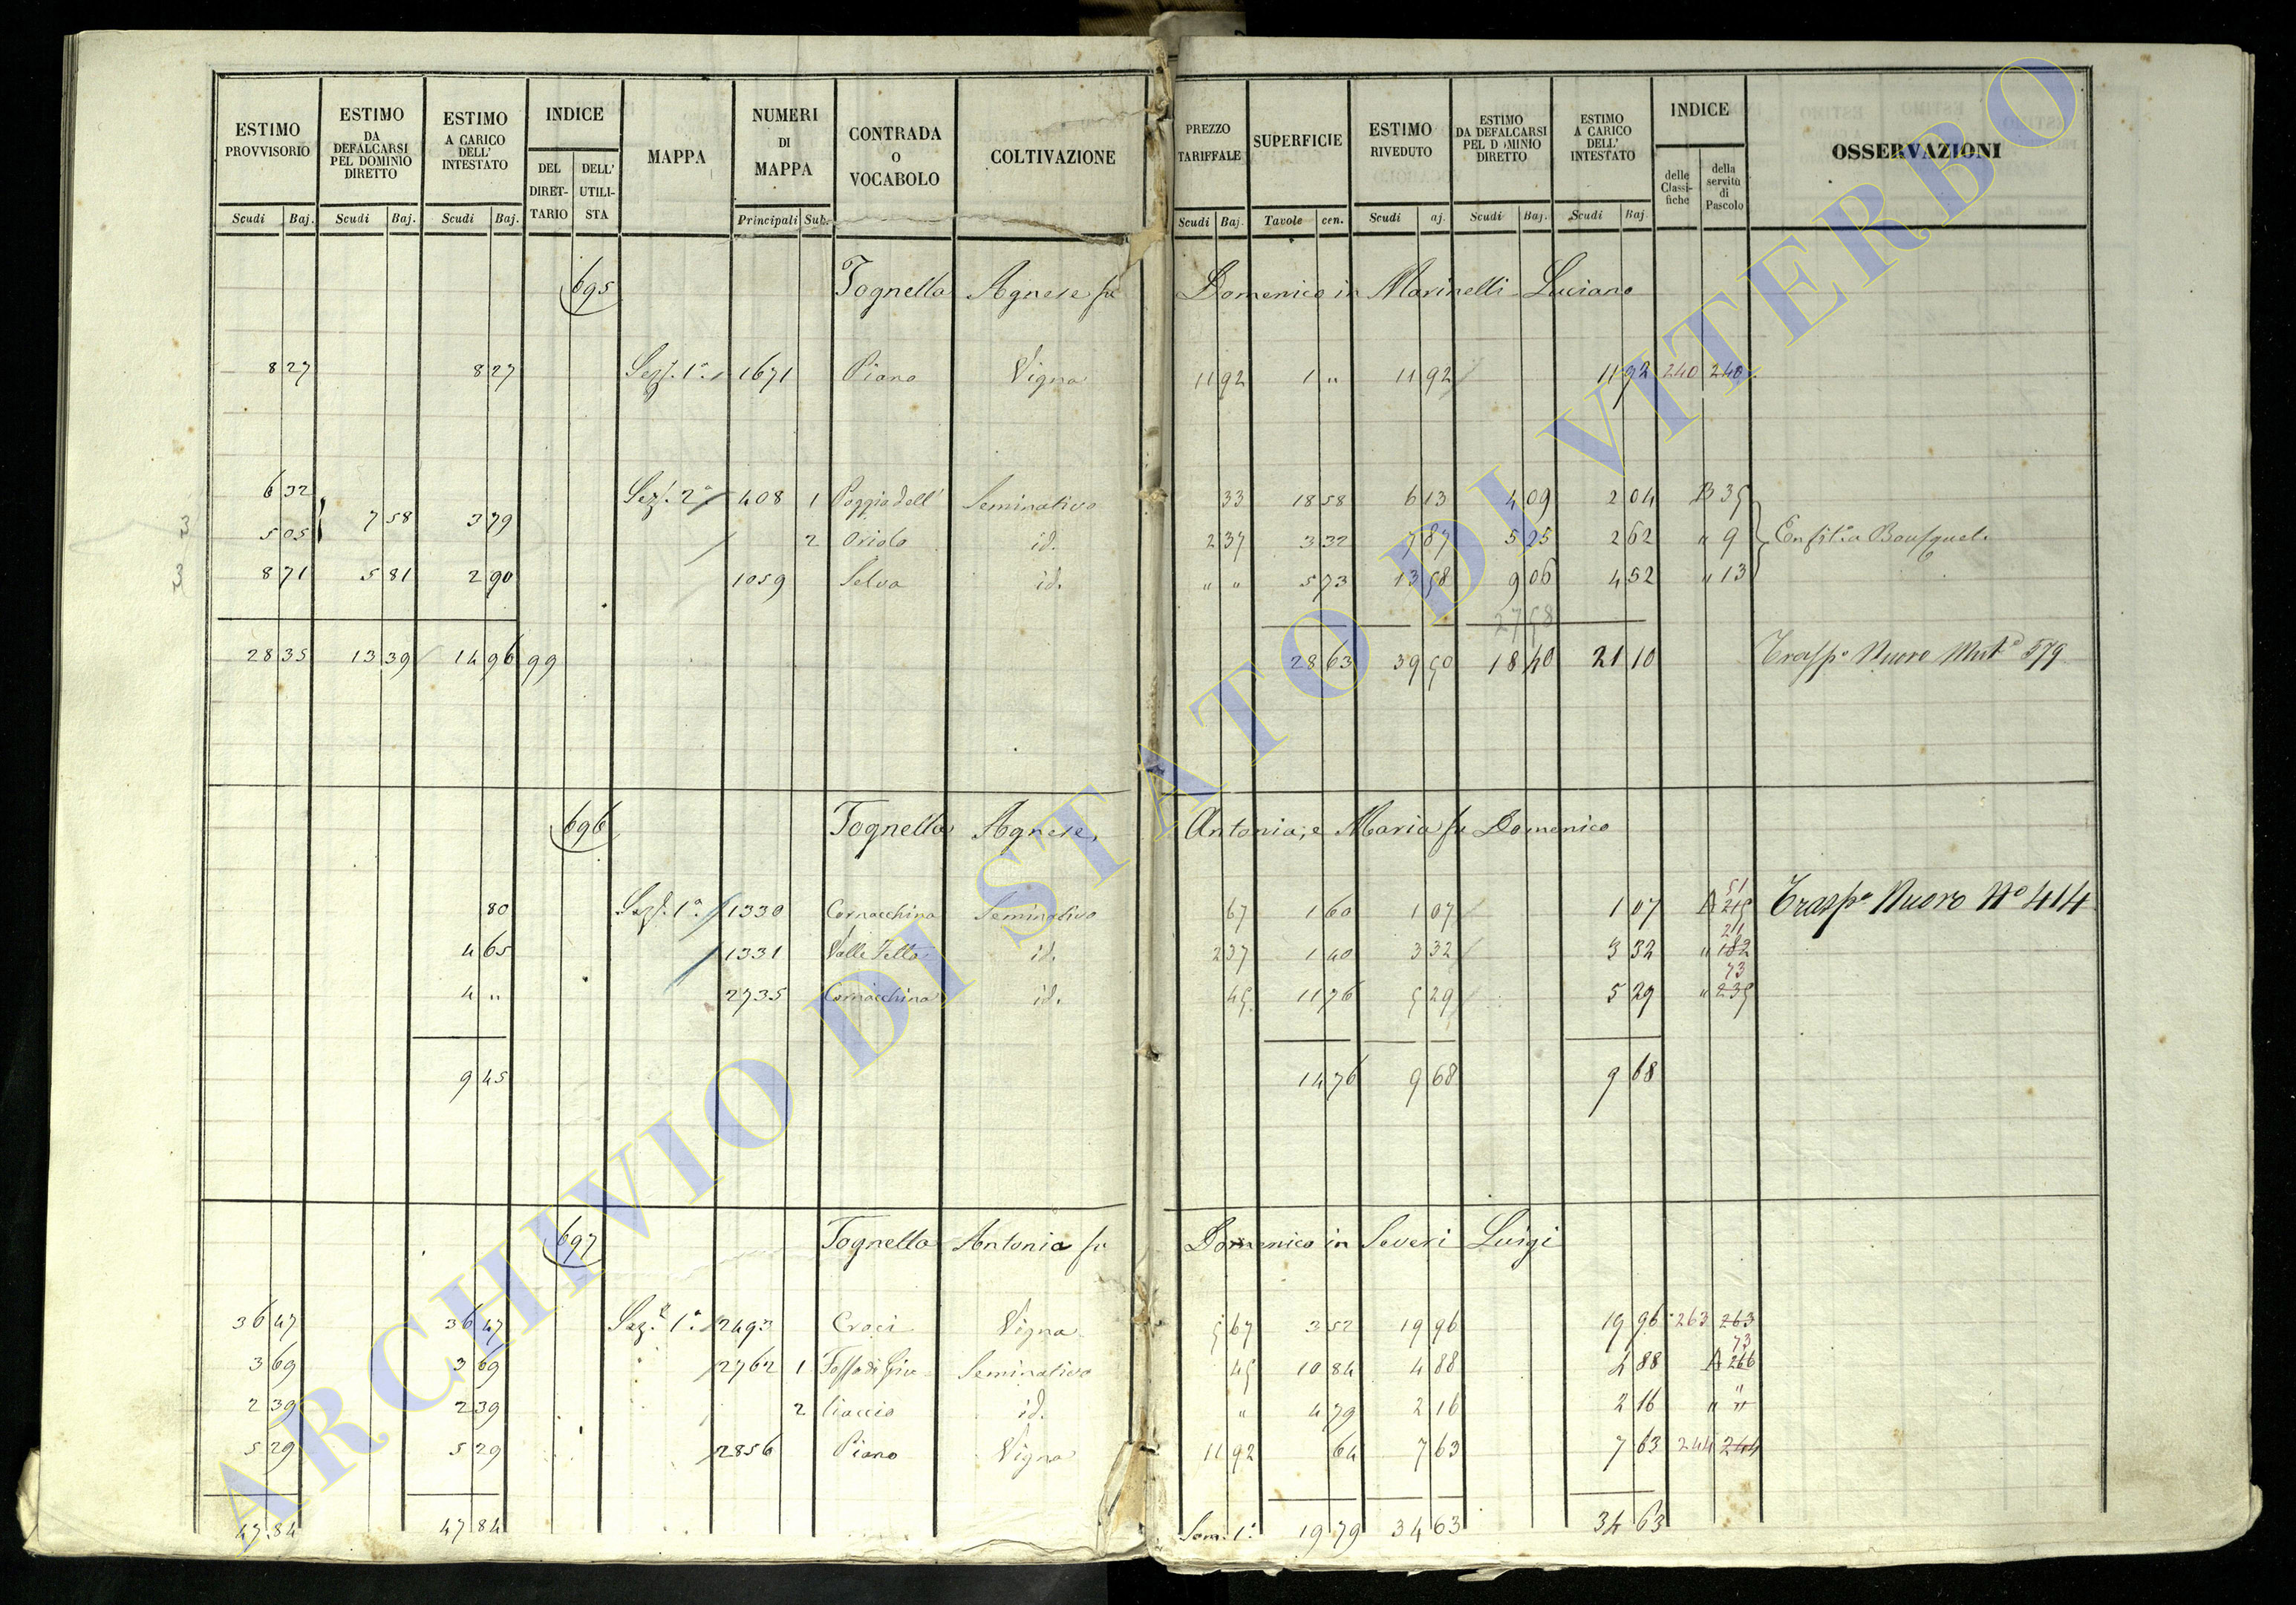 ESTIMO PROVVISORIO ESTIMO DA DEFALCARSI PEL DOMINIO DIRETTO ESTIMO A CARICO DELL' INTESTATO INDICE DEL DIRET-TARIO DELL' UTILI-STA MAPPA NUMERI DI MAPPA CONTRADA O VOCABOLO COLTIVAZIONE PREZZO TARIFFALE SUPERFICIE ESTIMO RIVEDUTO ESTIMO DA DEFALCARSI PEL D MINIO DIRETTO ESTIMO A CARICO DELL' INTESTATO INDICE delle Classi-fiche della servitù di Pascolo OSSERVAZIONI
Scudi Baj. Scudi Baj. Scudi Baj. Principali Sub. Scudi Baj. Tavole cen. Scudi aj. Scudi Baj. Scudi Baj.
695 Tognella Agnese fu Domenico in Marinelli Luciano
8 27 8 27 Sez. 1a 1671 Piano Vigna 11 92 1 " 11 92 11 92 240 240
6 32 Sez. 2a 408 1 Poggio dell' Seminativo 33 18 58 6 13 4 09 2 04 B 35
3 5 05 7 58 3 79 2 Oriolo id. 2 37 3 32 7 87 5 25 2 62 " 9
3 8 71 5 81 2 90 1059 Selva id. " " 5 73 13 58 9 06 4 52 " 13
27 58
28 35 13 39 14 96 99 28 63 39 50 18 40 21 10 Trasp.o Nuovo Mut.o 579
696 Tognella Agnese, Antonia, e Maria fu Domenico
80 Sez. 1a 1330 Cornacchina Seminativo 67 1 60 1 07 1 07 A 215 51 Trasp.o Nuovo No 414
4 65 1331 Valle Zella id. 2 37 1 40 3 32 3 32 " 182 211
4 " 2735 Cornacchina id. 45 11 76 5 29 5 29 " 235 73
9 45 14 76 9 68 9 68
697 Tognella Antonia fu Domenico in Severi Luigi
36 47 36 47 Sez. 1a 2493 Croci Vigna 5 67 3 52 19 96 19 96 263 263
3 69 3 69 2762 1 Fosso di Gra- Seminativo 45 10 84 4 88 4 88 A 266 73
2 39 2 39 2 liaccio id. " 4 79 2 16 2 16 " "
5 29 5 29 2856 Piano Vigna 11 92 64 7 63 7 63 244 244
47 84 47 84 Som. 1a 19 79 34 63 34 63
ARCHIVIO DI STATO DI VITERBO